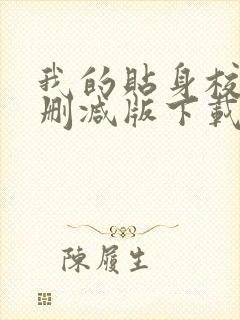 我的貼身校
刪減版下載
陳履生